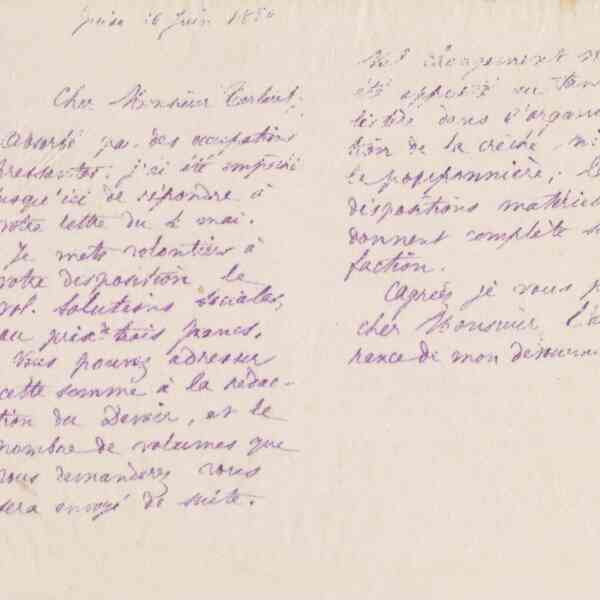 16 Juin 18
Cher Monsieur
absorbé par des occupations
pressantes, j'ai été empêché
jusqu'ici de répondre à
votre lettre du 2 mai.
Je mets volontiers à
votre disposition le
vol. Solutions sociales,
au prix de trois francs.
Vous pouvez adresser
cette somme à la rédac-
tion du Devoir, et le
nombre de volumes que
vous demanderez vous
sera envoyé de suite.
Nul changement n'
été apporté au Fam
listère dans l'organi
tion de la crèche ni
le pouponnière; le
dispositions matérie
donnent complète s
faction.
Agréez je vous p
cher Monsieur, l'a
rance de mon dévoueme